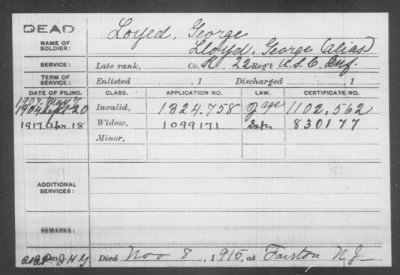 DEAD
Loyed, George
NAME OF SOLDIER:
Lloyd, George (alias)
SERVICE: Late rank, Co. K, 22 Reg't U.S.C. Inf.
TERM OF SERVICE: Enlisted , 1 Discharged , 1
DATE OF FILING. CLASS. APPLICATION NO. LAW. CERTIFICATE NO.
1907 May 7
1904 Sept 20 Invalid, 1324.758 age 1102,562
1917 Apr. 18 Widow, 1099171 830177
Minor,
ADDITIONAL SERVICES:
REMARKS:
Died Nov 8, 1915, at Fairton N.J.